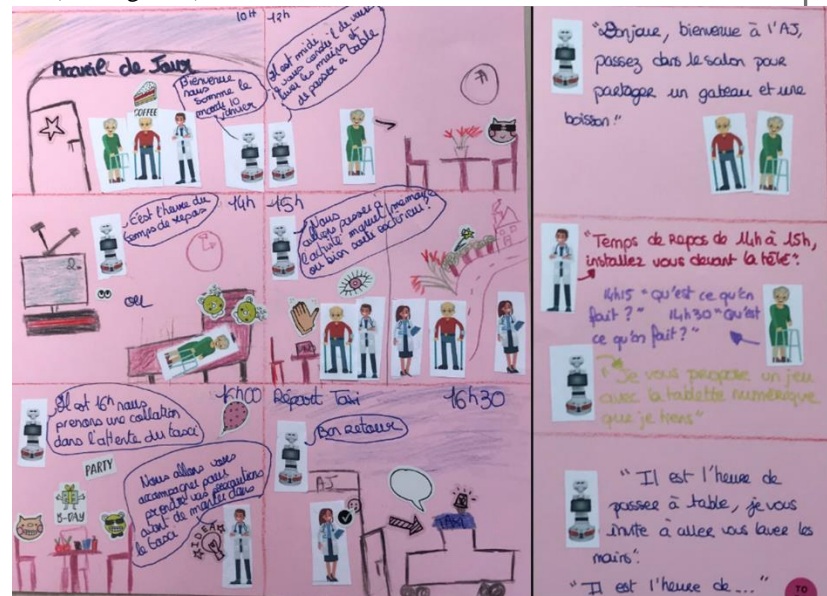 10H
Accueil de Jour
COFFEE
Bienvenue
nous
somme le
mardi 10
janvier
12h
Il est midi
vous
laver les mains et
de passer a table
14h
c'est l'heure du
temps de repas
ou
15h
Nous
allons passer a
l'activité manuel
ou bien sortie extérieur?
16h00
Il est 16h nous
prenons une collation
dans l'attente du taxi
PARTY
B-DAY
Nous allons vous
accompagner pour
prendre vos précautions
avant de monter dans
le taxi
IDEA
Départ Taxi
16h30
Bon retour
AJ
TAXI
"Bonjour, bienvenue à l'AJ,
passez dans le salon pour
partager un gateau et une
boisson"
"Temps de Repos de 14h à 15h,
installez vous devant la télé".
14h15 "Qu'est ce qu'on
fait?" 14h30 "Qu'est
ce qu'on fait?"
"Je vous propose un jeu
avec la tablette numérique
que je tiens"
"Il est l'heure de
passer à table, je vous
invite à aller vous laver les
mains".
"Il est l'heure de..."
TO